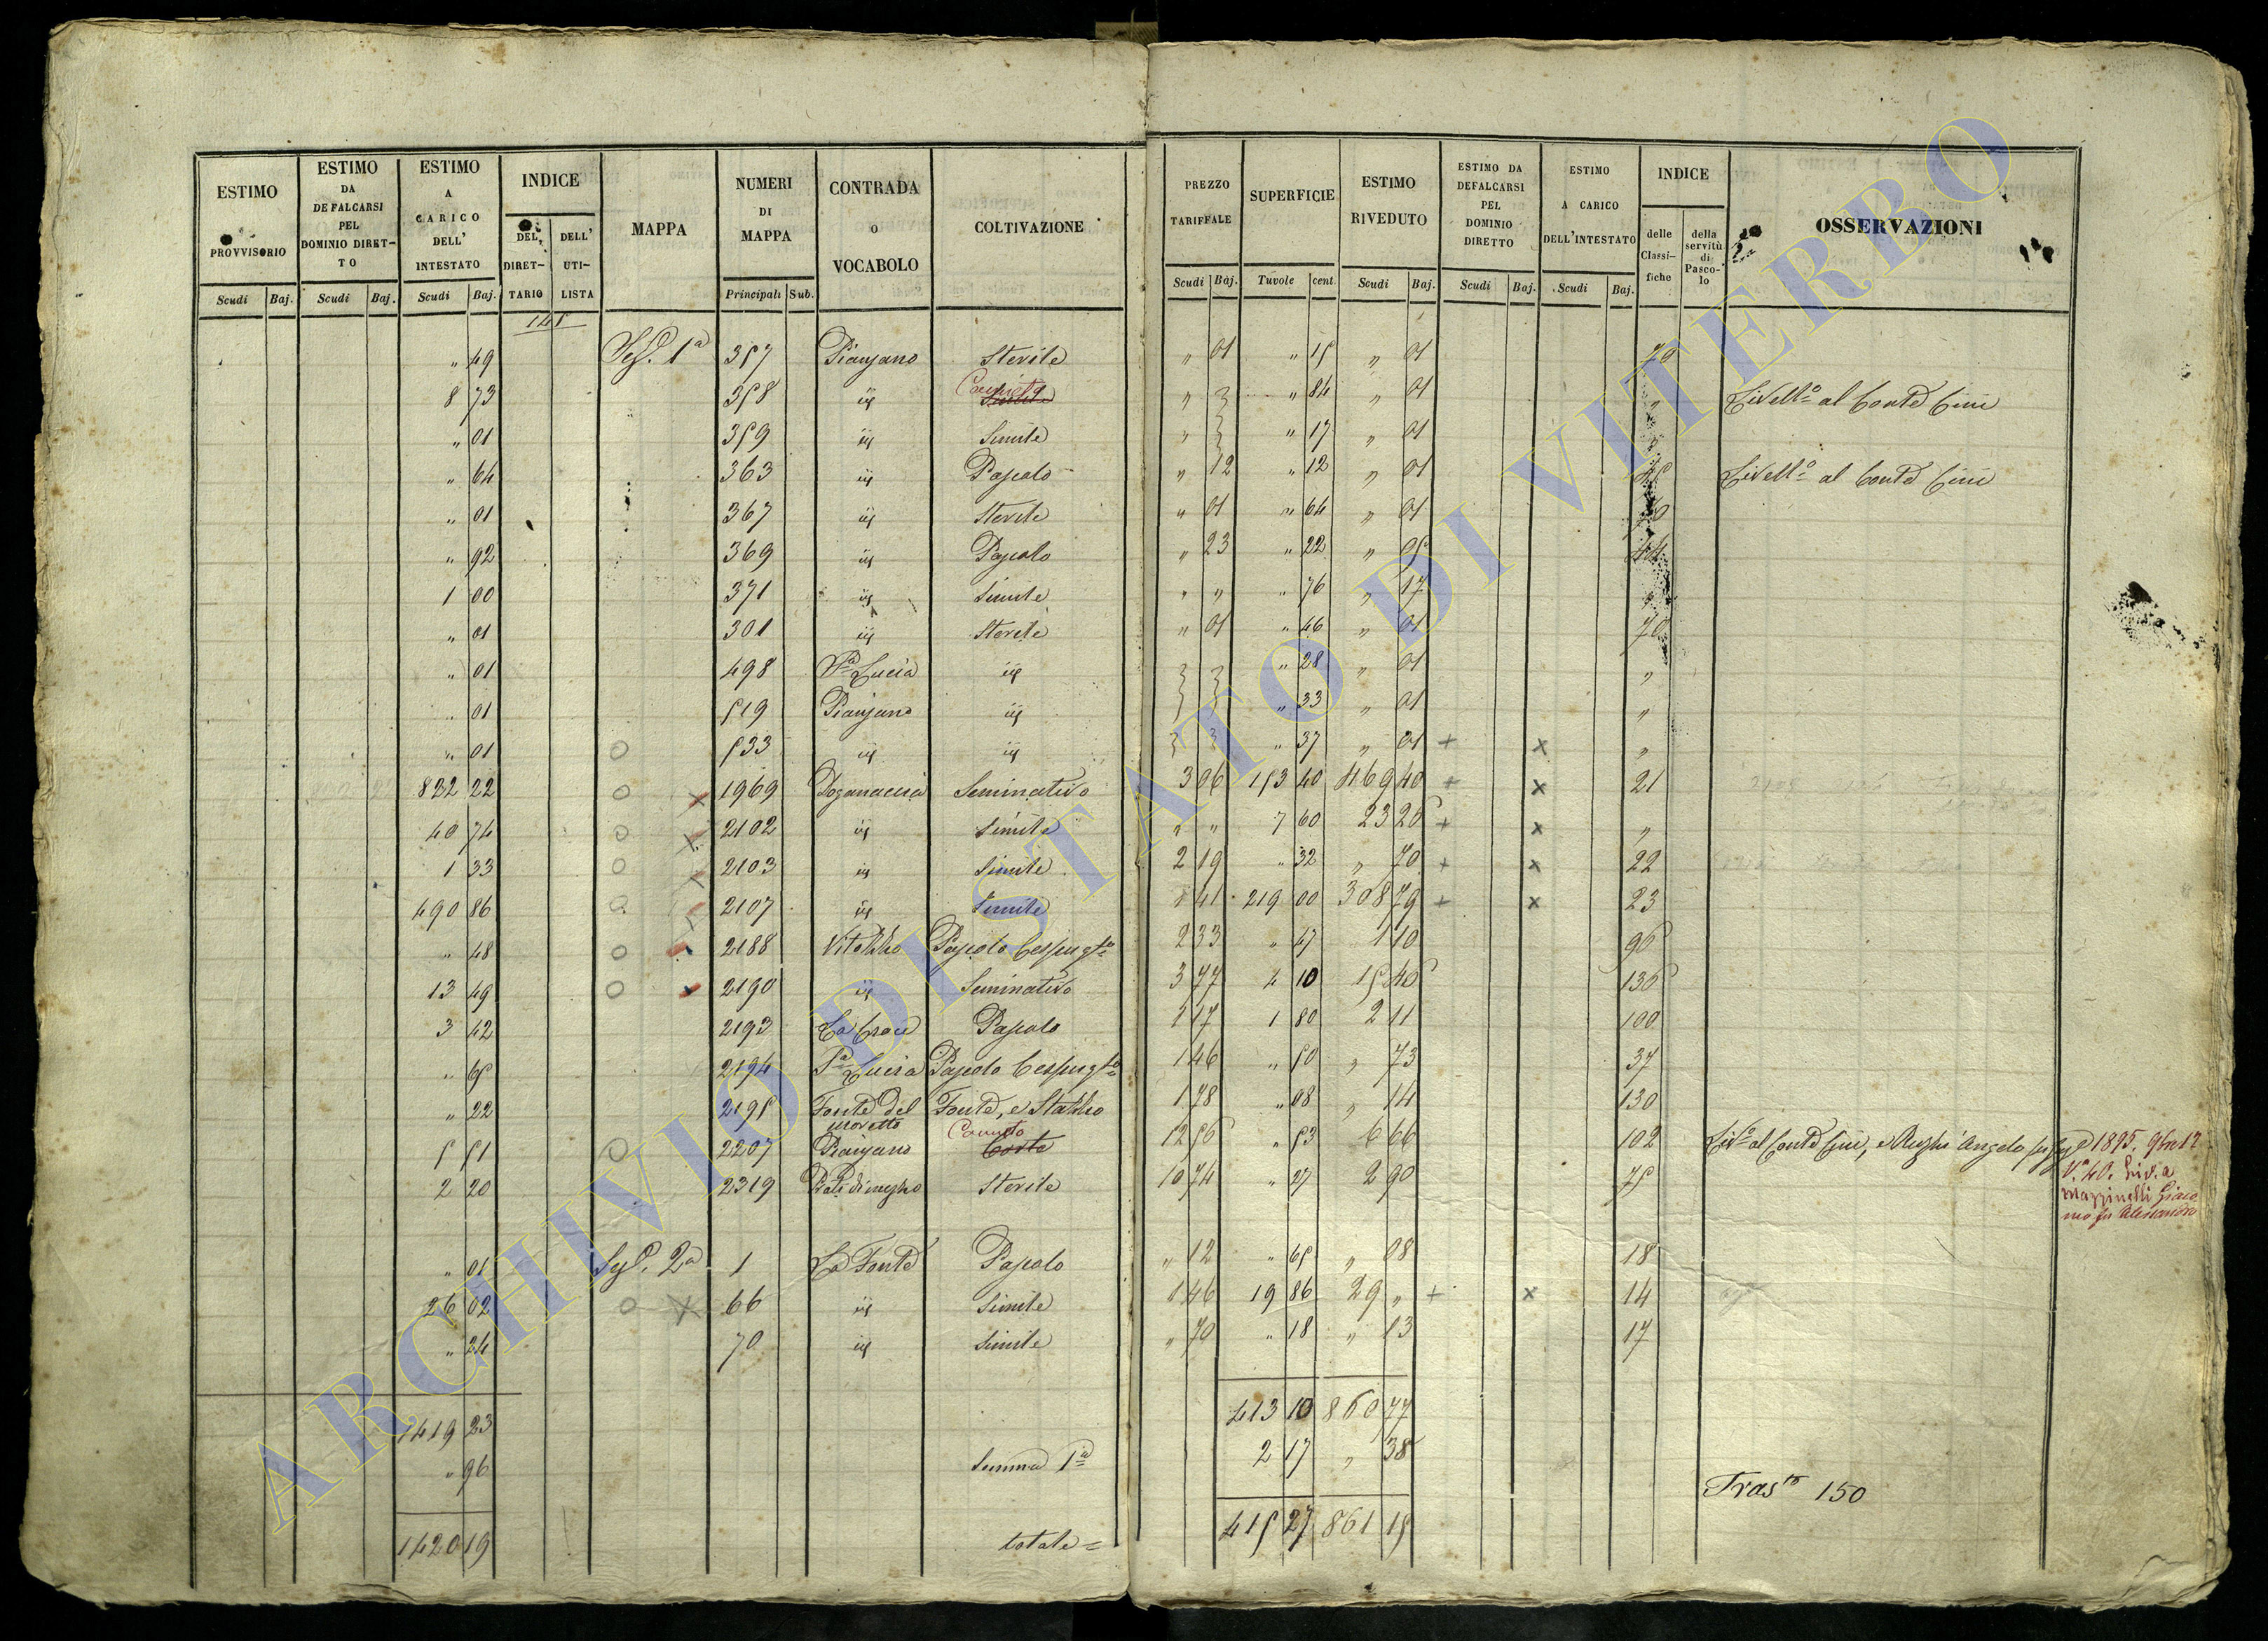 ESTIMO PROVVISORIO
ESTIMO DA DEFALCARSI PEL DOMINIO DIRETTO
ESTIMO A CARICO DELL' INTESTATO
INDICE
DEL DIRETTARIO
DELL' UTILISTA
MAPPA
NUMERI DI MAPPA
CONTRADA O VOCABOLO
COLTIVAZIONE
PREZZO TARIFFALE
SUPERFICIE
ESTIMO RIVEDUTO
ESTIMO DA DEFALCARSI PEL DOMINIO DIRETTO
ESTIMO A CARICO DELL'INTESTATO
INDICE
delle Classifiche
della servitù di Pascolo
OSSERVAZIONI
Scudi Baj. Scudi Baj. Scudi Baj. Principali Sub. Scudi Baj. Tavole cent. Scudi Baj. Scudi Baj. Scudi Baj.
" 49 1ª 357 Pianzano Sterile " 01 " 15 " 01 70
8 73 358 " 84 " 01 " Livellº al Conte Cini
" 01 359 Simile " 17 " 01
" 64 363 Pascolo " 12 " 12 " 01 Livellº al Conte Cini
" 01 367 Sterile " 01 " 64 " 01
" 92 369 Pascolo " 23 " 22 " 05 44
1 00 371 Simile " " " 76 " 17 "
" 01 301 Sterile " 01 " 46 " 01 70
" 01 498 Sª Lucia " 28 " 01 "
" 01 519 Pianzano " 33 " 01 "
" 01 533 " 37 " 01 + x "
832 22 x 1969 Doganaccia Seminativo 3 06 153 40 469 40 + x 21
40 74 x 2102 Simile " " 7 60 23 26 + x "
1 33 x 2103 Simile 2 19 " 32 " 70 + x 22
490 86 x 2107 Simile 1 41 219 00 308 79 + x 23
" 48 2188 Pascolo Cespugtº 2 33 " 47 1 10 96
13 49 x 2190 Seminativo 3 77 4 10 15 46 136
3 42 2193 La Croce Pascolo 1 17 1 80 2 11 100
" 65 2194 Sª Lucia Pascolo Cespugtº 1 46 " 50 " 73 37
" 22 2195 Fonte del Moretto Fonte, e Stabbio 1 78 " 08 " 14 130
5 51 2207 Pianzano Corte 12 56 " 53 6 66 102
2 20 2319 Sterile 10 74 " 27 2 90 75
1895. 9bre 12
Vª 40. Liv. a
Mazzinelli Giaco
mo fu Alessandro
" 01 2ª 1 La Fonte Pascolo " 12 " 65 " 08 18
26 02 x 66 Simile 1 46 19 86 29 " + x 14
" 24 70 Simile " 70 " 18 " 13 17
1419 23 413 10 860 77
" 96 Summa 1ª 2 17 " 38
Trasto 150
1420 19 totale = 415 27 861 15
ARCHIVIO DI STATO DI VITERBO